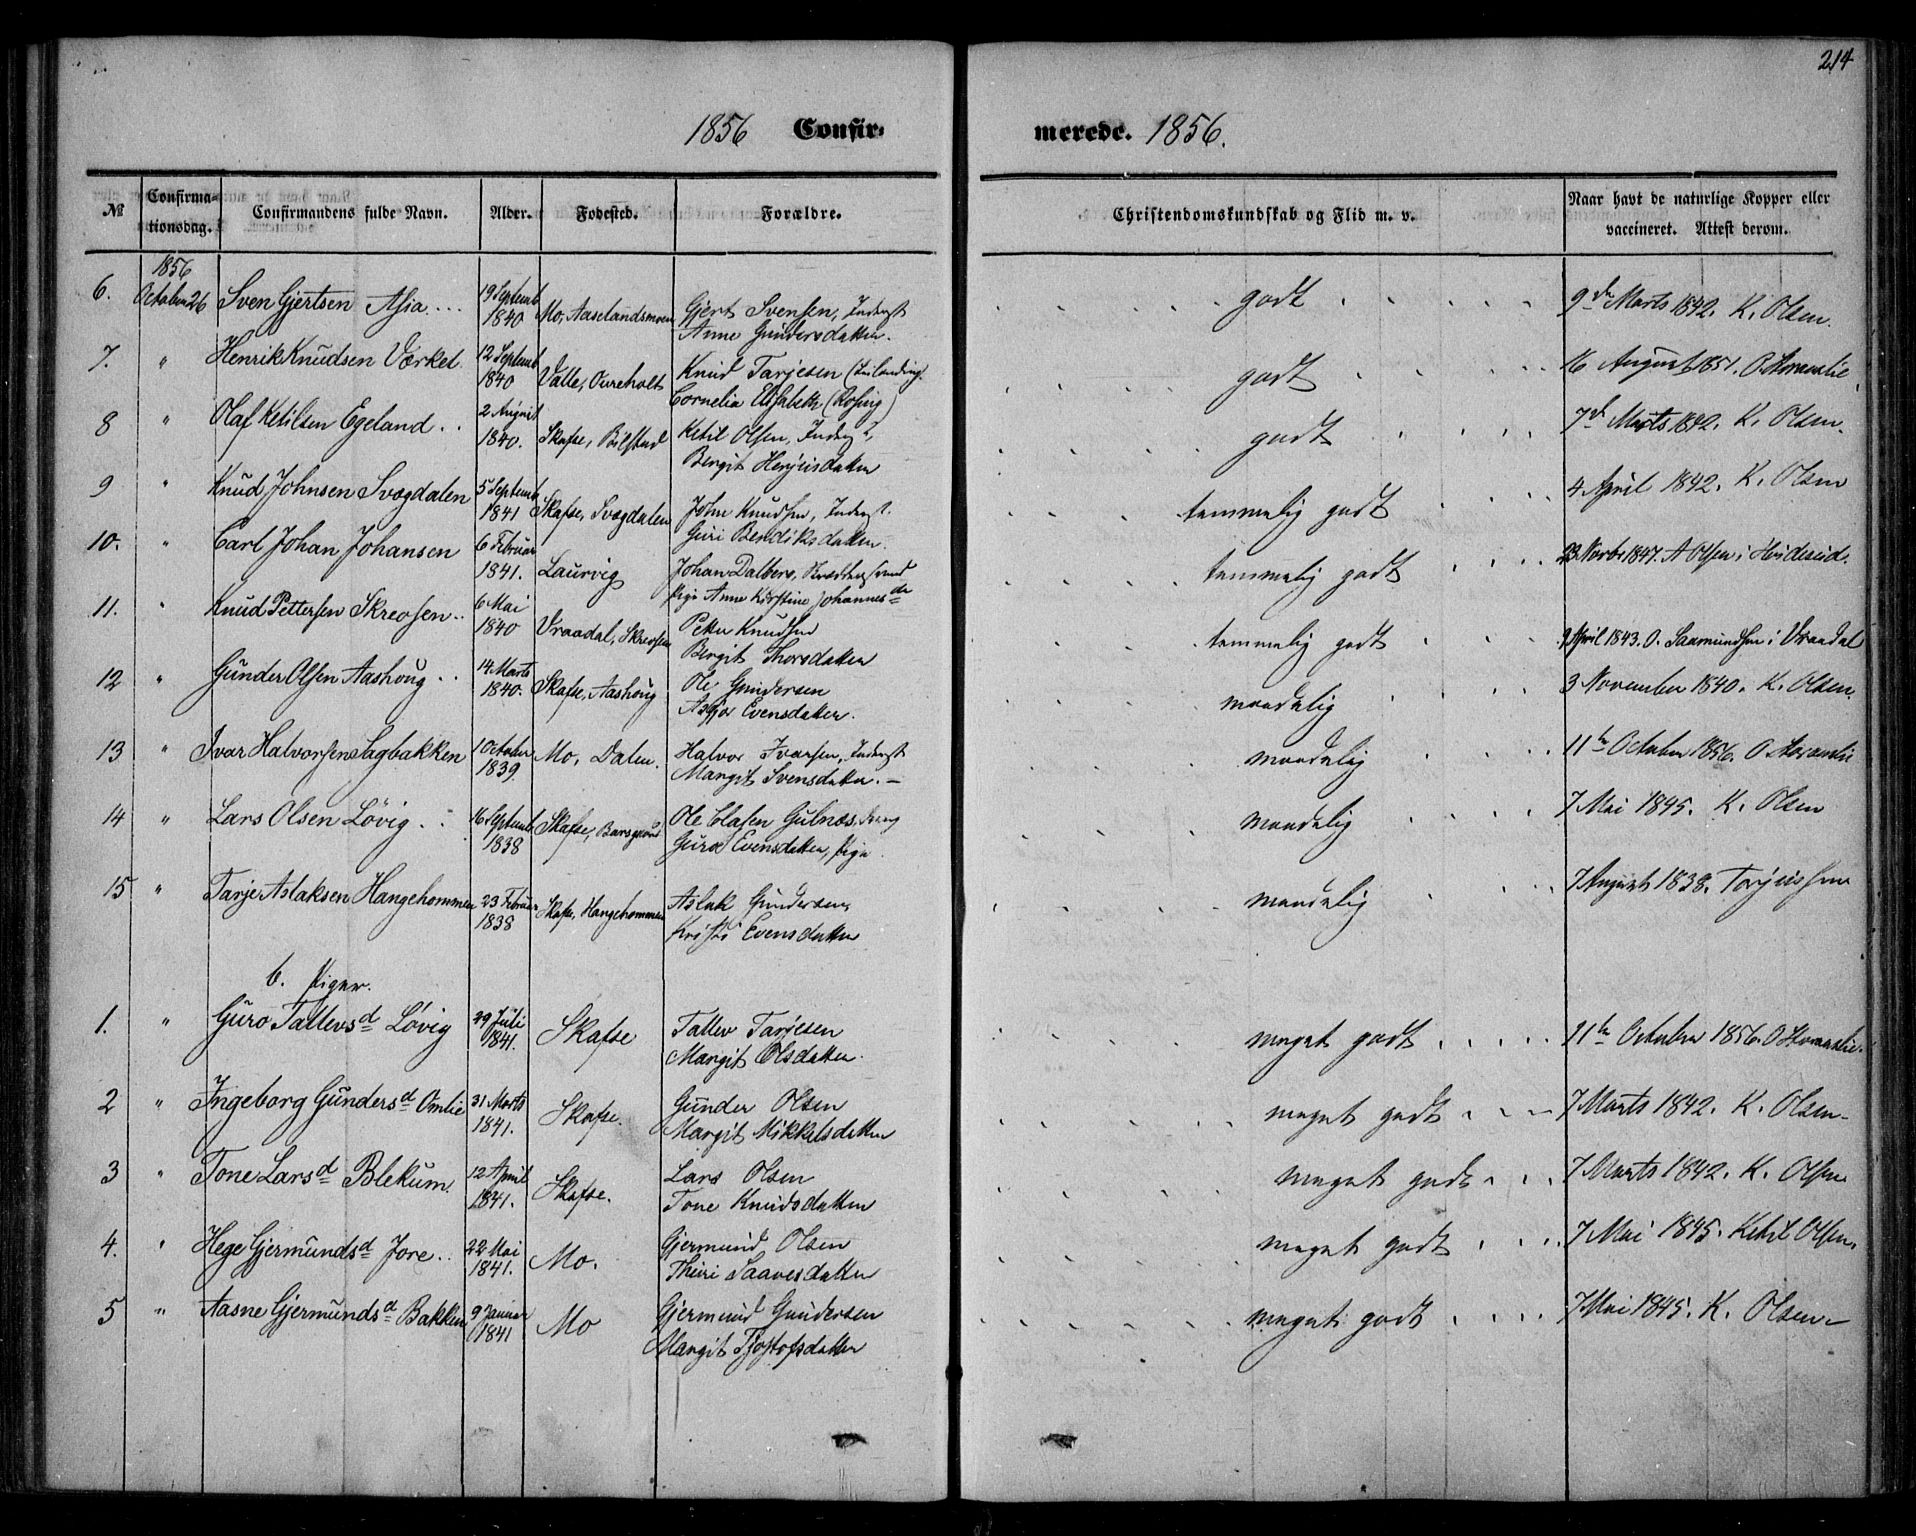 214
1856 Confir- merede. 1856.
№ Confirma-tionsdag. Confirmandens fulde Navn. Alder. Fødested. Forældre. Christendomskundskab og Flid m. v. Naar havt de naturlige Kopper eller vaccineret. Attest derom.
1856
6. October 26 Sven Gjertsen Asia 19 Septemb 1840 Mo, Aaselandsmoen Gjert Svensen, Inderst godt 9de Marts 1842. K. Olsen.
Anne Gundersdatter.
7. " Henrik Knudsen Værket 12 Septemb 1840 Valle, Oureholt Knud Tarjesen godt 16 August 1851.
Cornelia Elisabeth
8 " Olaf Ketilsen Egeland 2 August 1840. Skafse, Bølstad Ketil Olsen, Inderst, godt 7de Marts 1842. K. Olsen.
Bergit Herjusdatter
9 " Knud Johnsen Svægdalen 5 Septemb 1841 Skafse, Svægdalen John Knudsen, Inderst. temmelig godt 4 April 1842. K. Olsen
Guri Bendiksdatter.
10. " Carl Johan Johansen 6 Februar 1841. Laurvig Johan Dalberg, temmelig godt 1847. A Olsen i Hvidesid.
Pige Anne Kirstine Johannesdr
11. " Knud Pettersen Skreosen 6 Mai 1840 Vraadal, Skreosen Petter Knudsen temmelig godt 9 April 1843. O. Saamundsen i Vraadal
Bergit Thorsdatter
12 " Gunder Olsen Aashoug 14 Marts 1840. Skafse, Aashoug Ole Gundersen maadelig 3 November 1840. K. Olsen.
Asbjør Evensdatter.
13 " Ivar Halvorsen Sagbakken 1 October 1839. Mo, Dalen. Halvor Ivarsen, Inderst maadelig 11te October 1856.
Margit Svensdatter.
14 " Lars Olsen Løvig 16 Septemb 1838 Skafse, Ole Olafsen Gulnæs, maadelig 7 Mai 1845. K. Olsen
Guro Evensdatter, pige
15 " Tarje Aslaksen Hangehommen 23 Februar 1838 Skafse, Hangehommen Aslak Gundersen maadelig 7 August 1838. Torjussen
Evensdatter
b. Piger.
1. " Guro Tallevsd Løvig 29 Juli 1841. Skafse Tallev Tarjesen meget godt 11te October 1856.
Margit Olsdatter.
2 " Ingeborg Gundersd Omlie 31 Marts 1841. Skafse. Gunder Olsen meget godt 7 Marts 1842. K. Olsen
Margit Mikkelsdatter
3 " Tone Larsd Blekum. 12 April 1841. Skafse. Lars Olsen meget godt 7 Marts 1842. K. Olsen
Tone Knudsdatter
4. " Hege Gjermundsd Jore 22 Mai 1841. Mo. Gjermund Olsen meget godt 7 Mai 1845. Ketil Olsen.
Thuri Saavesdatter
5 " Aasne Gjermundsd Bakken 9 Januar 1841 Mo Gjermund Gundersen meget godt 7 Mai 1845. K. Olsen
Margit Tjostofsdatter